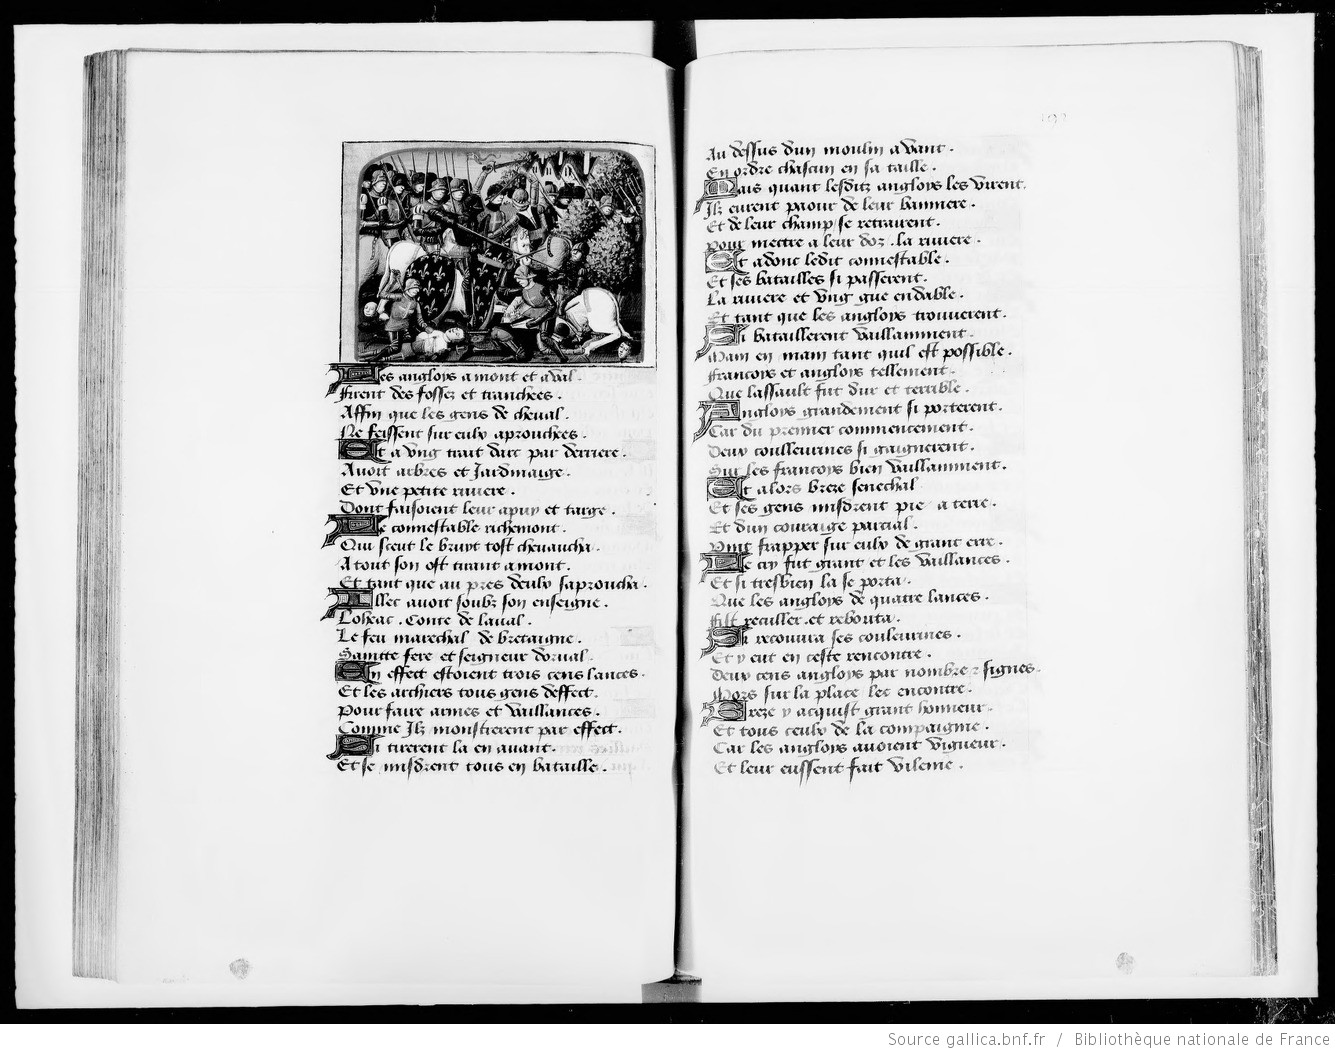 Les angloys amont et aval.
Firent des fossez et tranchees.
Affin que les gens de cheval.
Ne feissent sur eulx aprouchees.
Et a ung trait darc par derriere.
Avoit arbres et Jardinaige.
Et une petite riviere.
Dont faisoient leur apuy et targe.
Le connestable richemont.
Qui sceut le bruyt tost chevaucha.
A tout son ost tirant amont.
Et tant que au pres deulx saproucha.
Illec avoit soubz son enseigne.
Loheac. Conte de laval.
Le feu mareschal de bretaigne.
Saincte sere et seigneur dorval.
En effect estoient trois cens lances.
Et les archiers tous gens deffect.
Pour faire armes et vaillances.
Comme Ilz monstrerent par effect.
Si tirerent la en avant.
Et se misdrent tous en bataille.
Au dessus dun moulin avant.
En ordre chascun en sa taille.
Mais quant lesditz angloys les virent.
Ilz eurent paour de leur banniere.
Et de leur champ se retrairent.
Pour mectre a leur doz. la riviere.
Et adonc ledit connestable.
Et ses batailles si passerent.
La riviere et ung gue endable.
Et tant que les angloys trouverent.
Si bataillerent vaillamment.
Main en main tant quil est possible.
Francoys et angloys tellement.
Que lassault fut dur et terrible.
Angloys grandement si porterent.
Car du premier commencement.
Deux coulleurines si gaignerent.
Sur les francoys bien vaillamment.
Et alors breze seneschal
Et ses gens misdrent pie a terre.
Et dun couraige parcial.
Vint frapper sur eulx de grant erre.
Le cry fut grant et les vaillances.
Et si tresbien la se porta.
Que les angloys de quatre lances.
Fist reculler. et rebouta.
Si recouvra ses couleurines.
Et y eut en ceste rencontre.
Deux cens angloys par nombre z signes.
Mors sur la place lec encontre.
Breze y acquist grant honneur.
Et tous ceulx de la compaignie.
Car les angloys avoient vigueur.
Et leur eussent fait vilenie.
Source gallica.bnf.fr / Bibliothèque nationale de France